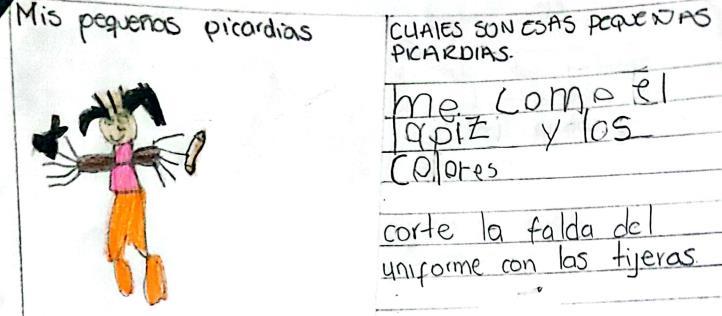 Mis pequeñas picardias
CUALES SON ESAS PEQUEÑAS
PICARDIAS.
me como el
lapiz y los
colores
corte la falda del
uniforme con las tijeras